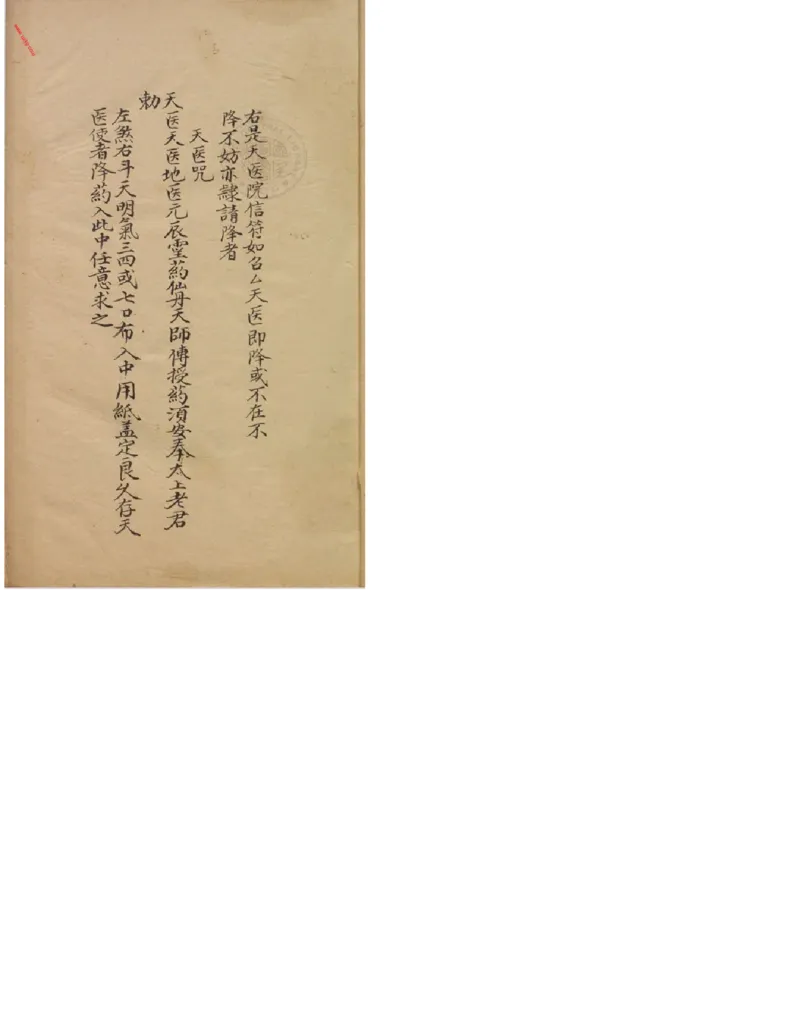 右是天医院信符如召厶天医即降或不在不
降不妨亦隸請降者
天医咒
天医天医地医元辰霊药仙丹天師傅授药須安奉太上老君
勅
左煞右斗天明氣三四或七口布入中用紙盖定良久存天
医使者降药入此中任意求之